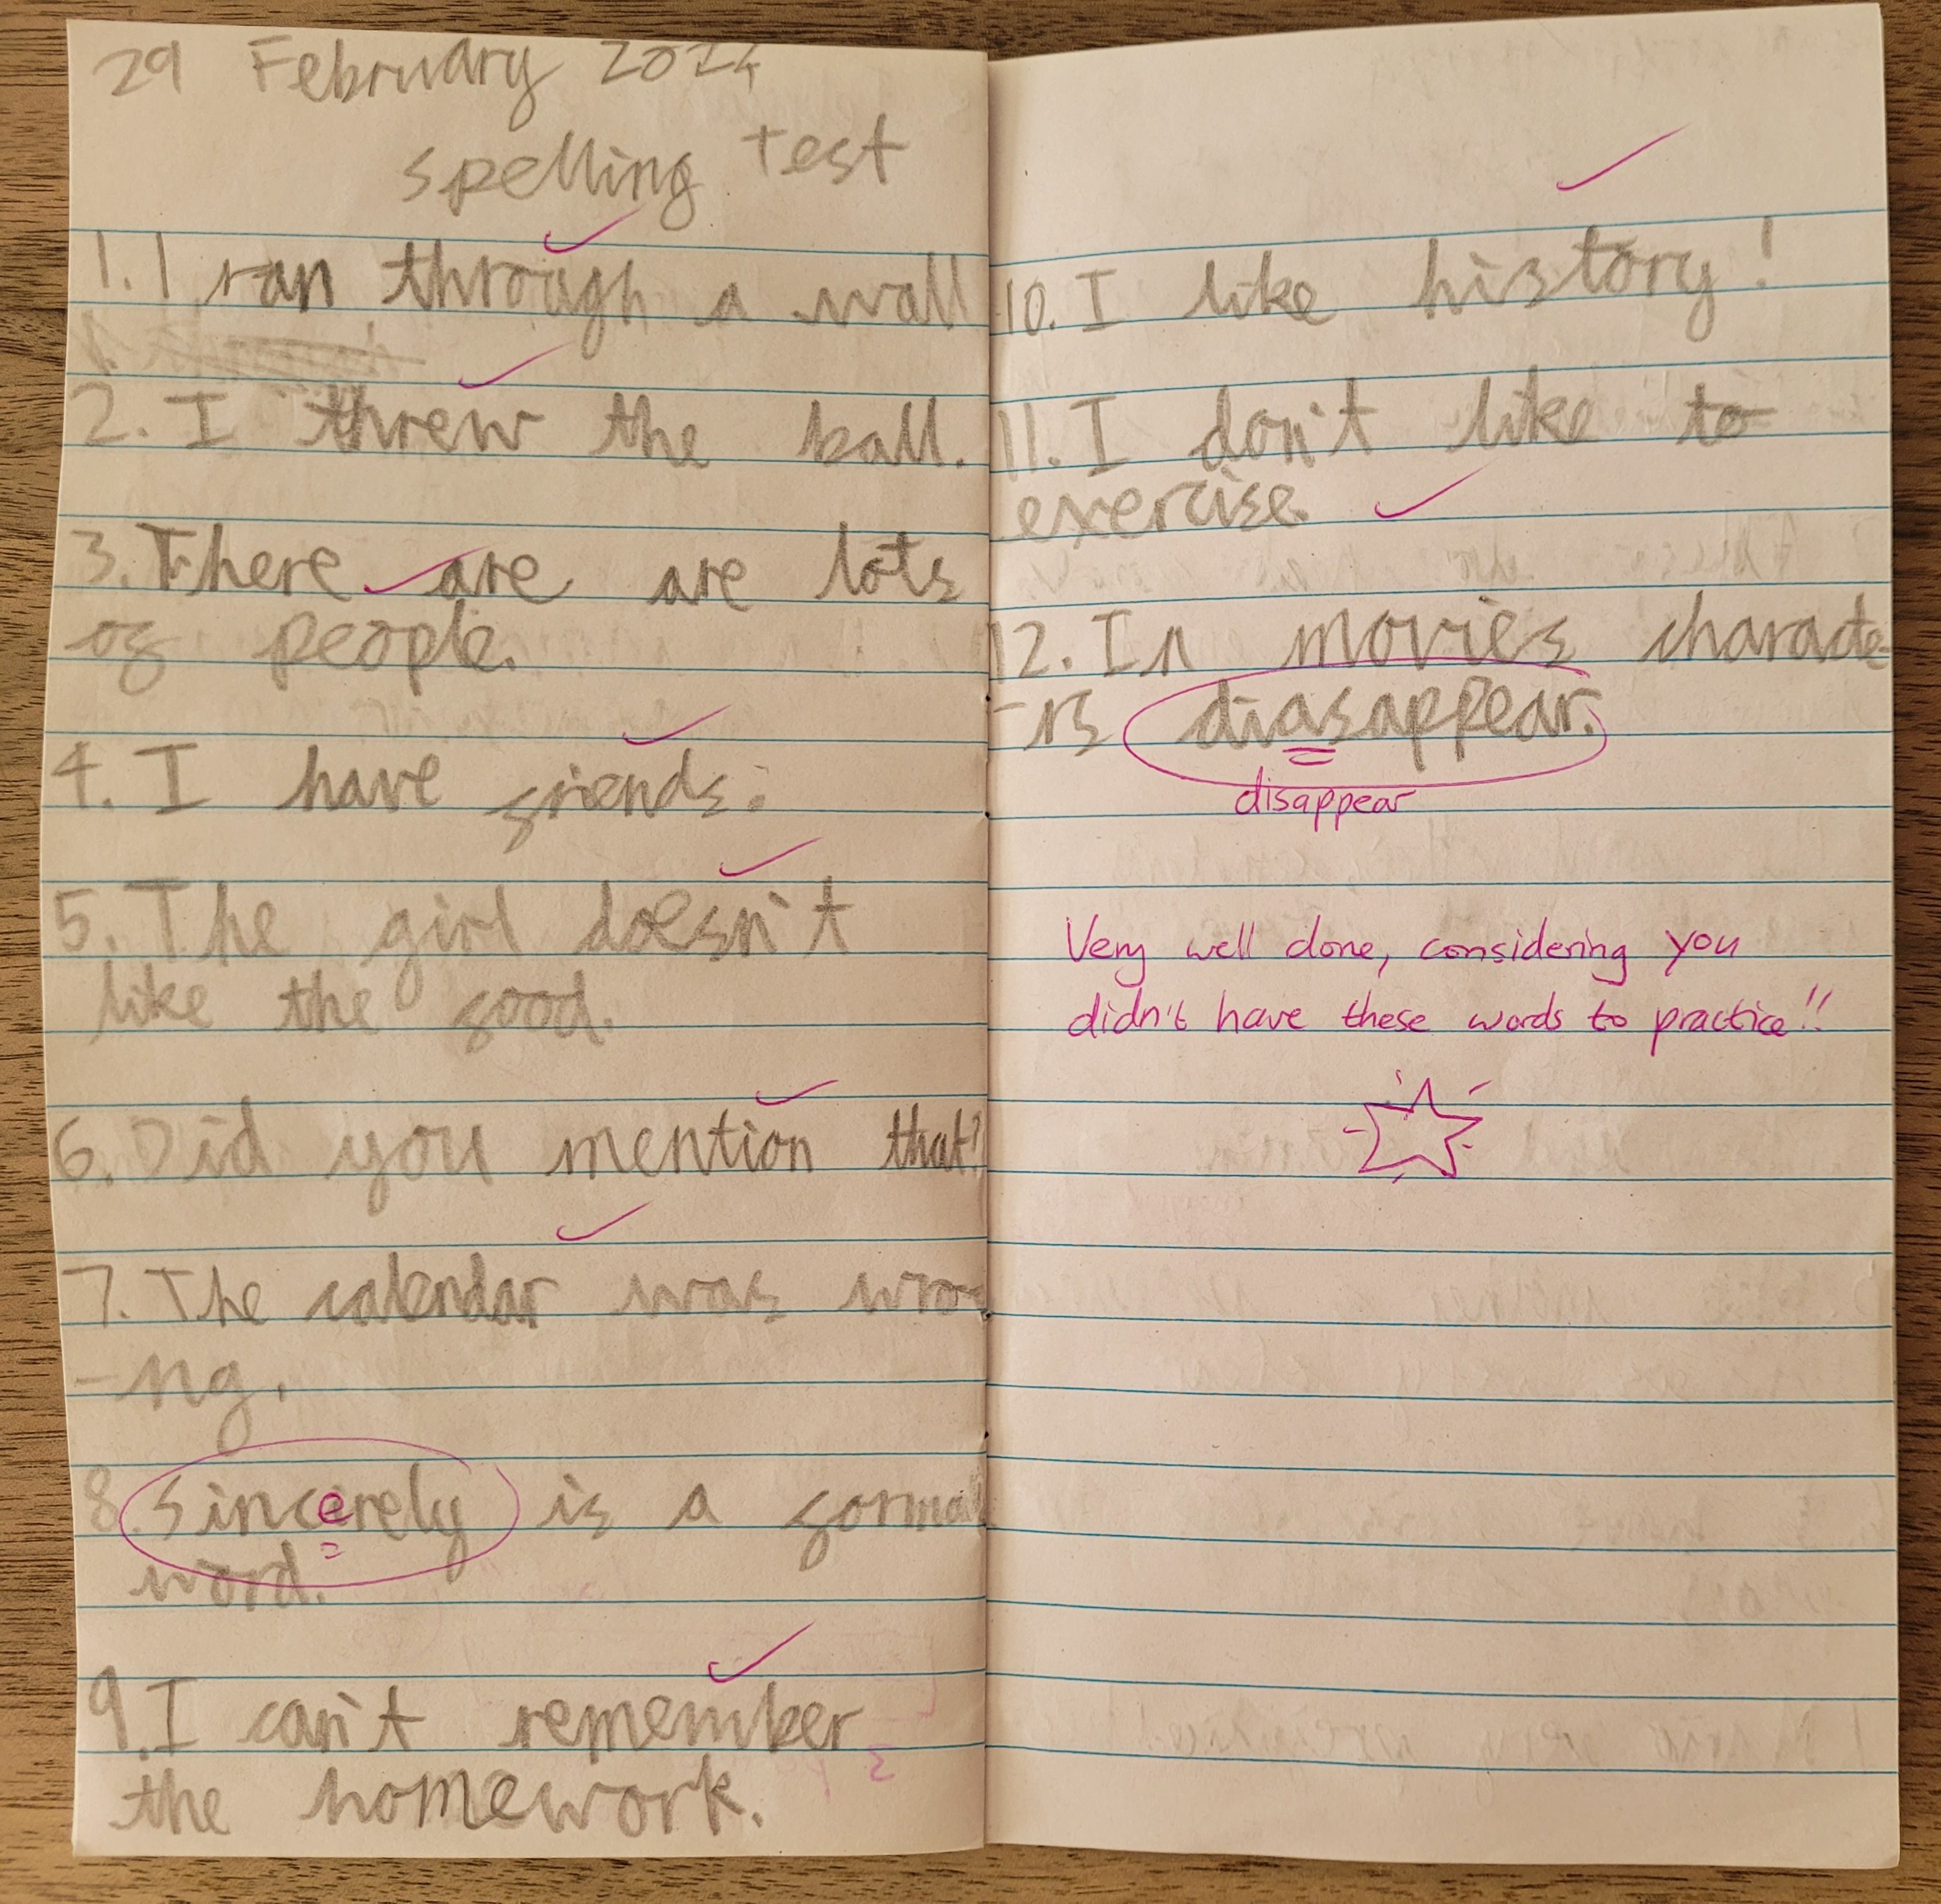 29 February 2024
spelling Test
1. I ran through a wall
2. I threw the ball.
3. There are are lots
of people.
4. I have friends.
5. The girl doesn't
like the food.
6. Did you mention that?
7. The calendar was wro-
-ng.
8. Sincerely is a formal
word.
9. I can't remember
the homework.
10. I like history!
11. I don't like to
exercise.
12. In movies characte-
-rs diasappear.
disappear
Very well done, considering you
didn't have these words to practice!!